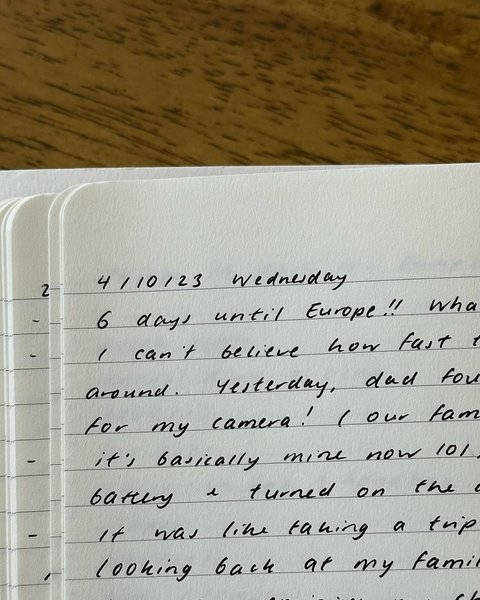 4/10/23 Wednesday
6 days until Europe!!
I can't believe how fast
around. Yesterday, dad
for my camera! ( our
it's basically mine now lol
battery & turned on the
It was like taking a trip
looking back at my